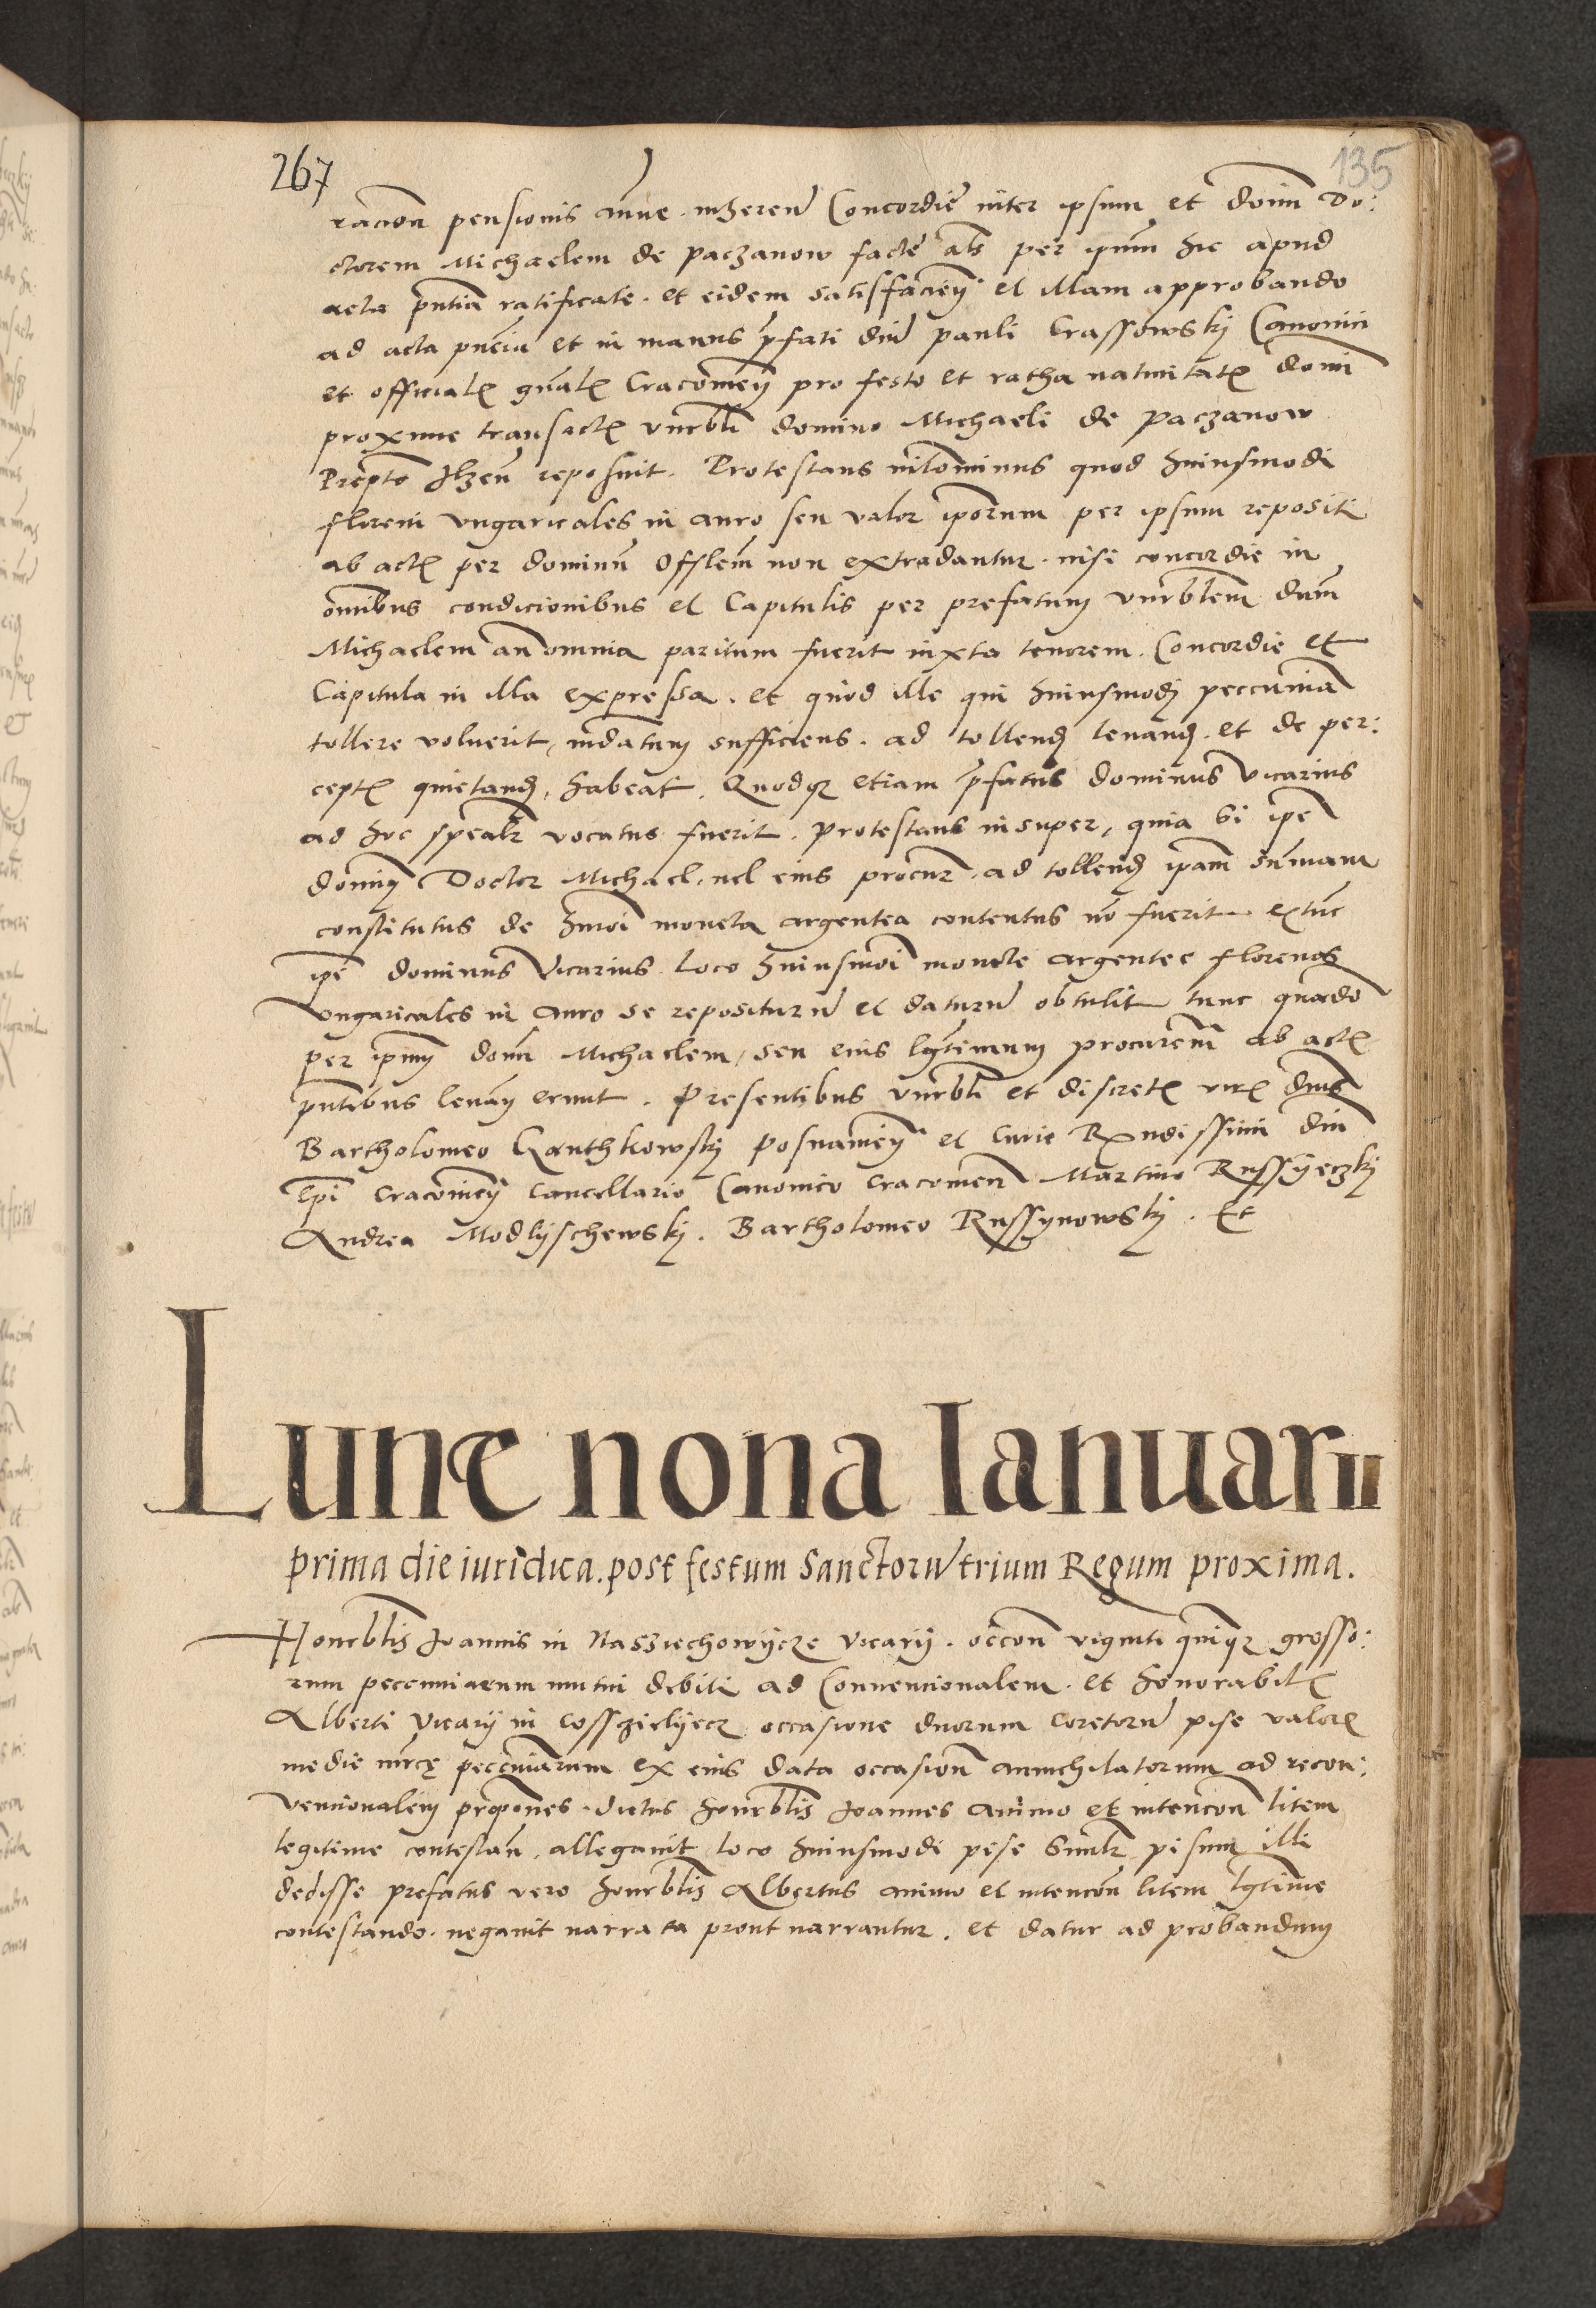 267
135
racion pensionis annue inheren Concordie inter ipsum et domin Do:
ctorem Michaelem de paczanow facte als per ipsum hic apud
acta pntia ratificate. et eidem satisfacien et illam approbando
ad acta pncia et in manus pfati dni pauli Crassowskj Canonici
et officialis gnalis Cracovien pro festo et ratha nativitatis domi
proxime transactis vnrbli domino Michaeli de paczanow
Prepto Ilzen reposuit. Protestans nilominus quod huiusmodi
floreni vngaricales in auro seu valor iporum per ipsum repositi
ab actis per dominum Offlem non extradantur. nisi concordie in
omibus condicionibus et Capitulis per prefatum vnrblem dum
Michaelem an omnia paritum fuerit iuxta tenorem. Concordie et
Capitula in illa expressa. et quod ille qui huiusmodj peccuniam
tollere voluerit, mdatum sufficiens. ad tollend levand. et de per:
ceptis quietand, habeat. Quodq etiam pfatus dominus vicarius
ad hoc spealr vocatus fuerit. protestans insuper, quia si ipe
dominus Doctor Michael, vel eius procur. ad tollend ipam summam
constitutus de hmoi moneta argentea contentus no fuerit extunc
ipe dominus Vicarius loco huiusmoi monete argentee florenos
vngaricales in auro se repositurum et daturum obtulit tunc quando
per ipum domi Michaelem, seu eius lgtimum procurem ab actis
pntibus levan erunt. Presentibus vnrbli et discretis viris dnis
Bartholomeo Ganthkowskj posnanien et Curie Rndissimi dni
Epi Cracovien Cancellario Canonico Cracovien Martino Russyeczkj
Andrea Modlyschewskj. Bartholomeo Russynowskj. Et
Lune nona Ianuarii
prima die iuridica. post festum Sanctorum trium Regum proxima.
Honrblis Joannis in Nasziechowycze vicarij. occon viginti quinqz grosso:
rum peccuniarum mutui debiti ad Convencionalem. et honorabilis
Alberti vicarij in Cossziclyecz occasione duorum coretorum pise valoris
medie mrce pecuniarum ex eius data occasion annichilatorum ad recon:
vencionalem propones. dictus honrblis Joannes animo et intencon litem
legitime contestan, allegavit loco huiusmodi pise simlr pisum illi
dedisse prefatus vero honrblis Albertus animo et intencon litem lgtime
contestando. negavit narrata prout narrantur. et datur ad probandum